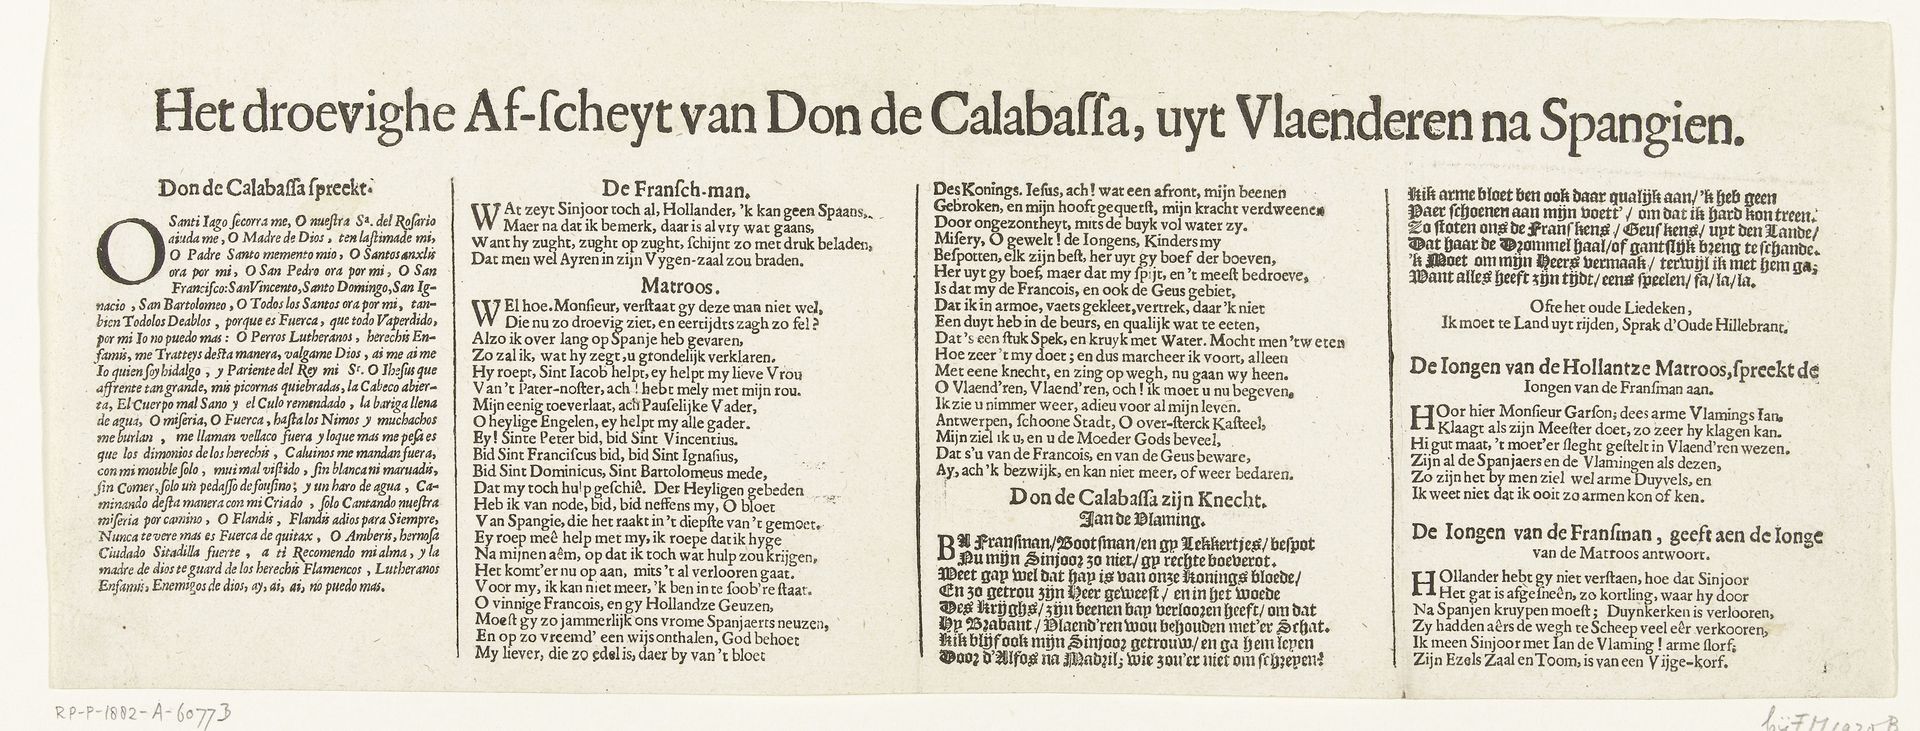 Het droevighe Af-ſcheyt van Don de Calabaſſa, uyt Vlaenderen na Spangien.
Don de Calabaſſa ſpreekt.
O Santi Iago ſecorra me, O nueſtra Sa. del Roſario
aiuda me, O Madre de Dios, ten laſtimade mi,
O Padre Santo memento mio, O Santos anxlis
ora por mi, O San Pedro ora por mi, O San
Franciſco: San Vincento, Santo Domingo, San Ig-
nacio, San Bartolomeo, O Todos los Santos ora por mi, tan-
bien Todolos Deablos, porque es Fuerca, que todo Vaperdido,
por mi Io no puedo mas: O Perros Lutheranos, herechis En-
famis, me Tratteys deſta manera, valgame Dios, ai me ai me
Io quien ſoy hidalgo, y Pariente del Rey mi Sr. O Iheſus que
affrente tan grande, mis picornas quiebradas, la Cabeco abier-
ta, El Cuerpo mal Sano y el Culo remendado, la bariga llena
de agua, O miſeria, O Fuerca, haſta los Nimos y muchachos
me burlan, me llaman vellaco fuera y loque mas me peſa es
que los dimonios de los herechis, Caluinos me mandan fuera,
con mi mouble ſolo, mui mal viſtido, ſin blanca ni maruadis,
ſin Comer, ſolo un pedaſſo de fouſino; y un haro de agua, Ca-
minando deſta manera con mi Criado, ſolo Cantando nueſtra
miſeria por camino, O Flandis, Flandis adios para Siempre,
Nunca te vere mas es Fuerca de quitax, O Amberis, hermoſa
Ciudado Sitadilla fuerte, a ti Recomendo mi alma, y la
madre de dios te guard de los herechis Flamencos, Lutheranos
Enfamis, Enemigos de dios, ay, ai, ai, no puedo mas.
De Franſch-man.
WAt zeyt Sinjoor toch al, Hollander, 'k kan geen Spaans,
Maer na dat ik bemerk, daar is al vry wat gaans,
Want hy zught, zught op zught, ſchijnt zo met druk beladen,
Dat men wel Ayren in zijn Vygen-zaal zou braden.
Matroos.
WEl hoe. Monſieur, verſtaat gy deze man niet wel,
Die nu zo droevig ziet, en eertijdts zagh zo fel?
Alzo ik over lang op Spanje heb gevaren,
Zo zal ik, wat hy zegt, u grondelijk verklaren.
Hy roept, Sint Iacob helpt, ey helpt my lieve Vrou
Van 't Pater-noſter, ach! hebt mely met mijn rou.
Mijn eenig toeverlaat, ach Pauſelijke Vader,
O heylige Engelen, ey helpt my alle gader.
Ey! Sinte Peter bid, bid Sint Vincentius.
Bid Sint Franciſcus bid, bid Sint Ignaſius,
Bid Sint Dominicus, Sint Bartolomeus mede,
Dat my toch hulp geſchiê. Der Heyligen gebeden
Heb ik van node, bid, bid neffens my, O bloet
Van Spangie, die het raakt in 't diepſte van 't gemoet.
Ey roep meê help met my, ik roepe dat ik hyge
Na mijnen aêm, op dat ik toch wat hulp zou krijgen,
Het komt'er nu op aan, mits 't al verlooren gaat.
Voor my, ik kan niet meer, 'k ben in te ſoob're ſtaat.
O vinnige Francois, en gy Hollandze Geuzen,
Moeſt gy zo jammerlijk ons vrome Spanjaerts neuzen,
En op zo vreemd' een wijs onthalen, God behoet
My liever, die zo edel is, daer by van 't bloet
Des Konings. Ieſus, ach! wat een afront, mijn beenen
Gebroken, en mijn hooft gequetſt, mijn kracht verdweenen
Door ongezontheyt, mits de buyk vol water zy.
Miſery, O gewelt! de Iongens, Kinders my
Beſpotten, elk zijn beſt, her uyt gy boef der boeven,
Her uyt gy boef, maer dat my ſpijt, en 't meeſt bedroeve,
Is dat my de Francois, en ook de Geus gebiet,
Dat ik in armoe, vaets gekleet, vertrek, daar 'k niet
Een duyt heb in de beurs, en qualijk wat te eeten,
Dat 's een ſtuk Spek, en kruyk met Water. Mocht men 't weten
Hoe zeer 't my doet; en dus marcheer ik voort, alleen
Met eene knecht, en zing op wegh, nu gaan wy heen.
O Vlaend'ren, Vlaend'ren, och! ik moet u nu begeven,
Ik zie u nimmer weer, adieu voor al mijn leven.
Antwerpen, ſchoone Stadt, O over-ſterck Kaſteel,
Mijn ziel ik u, en u de Moeder Gods beveel,
Dat s'u van de Francois, en van de Geus beware,
Ay, ach 'k bezwijk, en kan niet meer, of weer bedaren.
Don de Calabaſſa zijn Knecht.
Jan de Vlaming.
BA Franſman/Bootſman/en gy Lekkertjes/beſpot
Nu mijn Sinjooz zo niet/gy rechte boeverot.
Weet gay wel dat hay is van onze Konings bloede/
En zo getrou zijn Heer geweeſt/ en in het woede
Des Krijghs/zijn beenen bay verlooren heeft/om dat
Hy Brabant/Vlaend'ren wou behouden met'er Schat.
Kik blijf ook mijn Sinjooz getrouw/en ga hem leyen
Dooz d'Alfos na Madril; wie zou'er niet om ſchreyen?
Kik arme bloet ben ook daar qualijk aan/'k heb geen
Paer ſchoenen aan mijn voett'/ om dat ik hard kon treen.
Zo ſtoten ons de Franſkens/Geuſkens/uyt den Lande/
Dat haar de Drommel haal/of gantſlijk breng te ſchande.
'k Moet om mijn Heers vermaak/terwijl ik met hem ga;
Want alles heeft zijn tijdt/eens ſpeelen/fa/la/la.
Ofte het oude Liedeken,
Ik moet te Land uyt rijden, Sprak d'Oude Hillebrant.
De Iongen van de Hollantze Matroos, ſpreekt de
Iongen van de Franſman aan.
HOor hier Monſieur Garſon; dees arme Vlamings Ian.
Klaagt als zijn Meeſter doet, zo zeer hy klagen kan.
Hi gut maat, 't moet'er ſleght geſtelt in Vlaend'ren wezen.
Zijn al de Spanjaers en de Vlamingen als dezen,
Zo zijn het by men ziel wel arme Duyvels, en
Ik weet niet dat ik ooit zo armen kon of ken.
De Iongen van de Franſman, geeft aen de Ionge
van de Matroos antwoort.
HOllander hebt gy niet verſtaen, hoe dat Sinjoor
Het gat is afgeſneên, zo kortling, waar hy door
Na Spanjen kruypen moeſt; Duynkerken is verlooren,
Zy hadden aêrs de wegh te Scheep veel eêr verkooren,
Ik meen Sinjoor met Ian de Vlaming! arme ſlorf;
Zijn Ezels Zaal en Toom, is van een Vijge-korf.
RP-P-1882-A-6077B
bij FM 1920 B